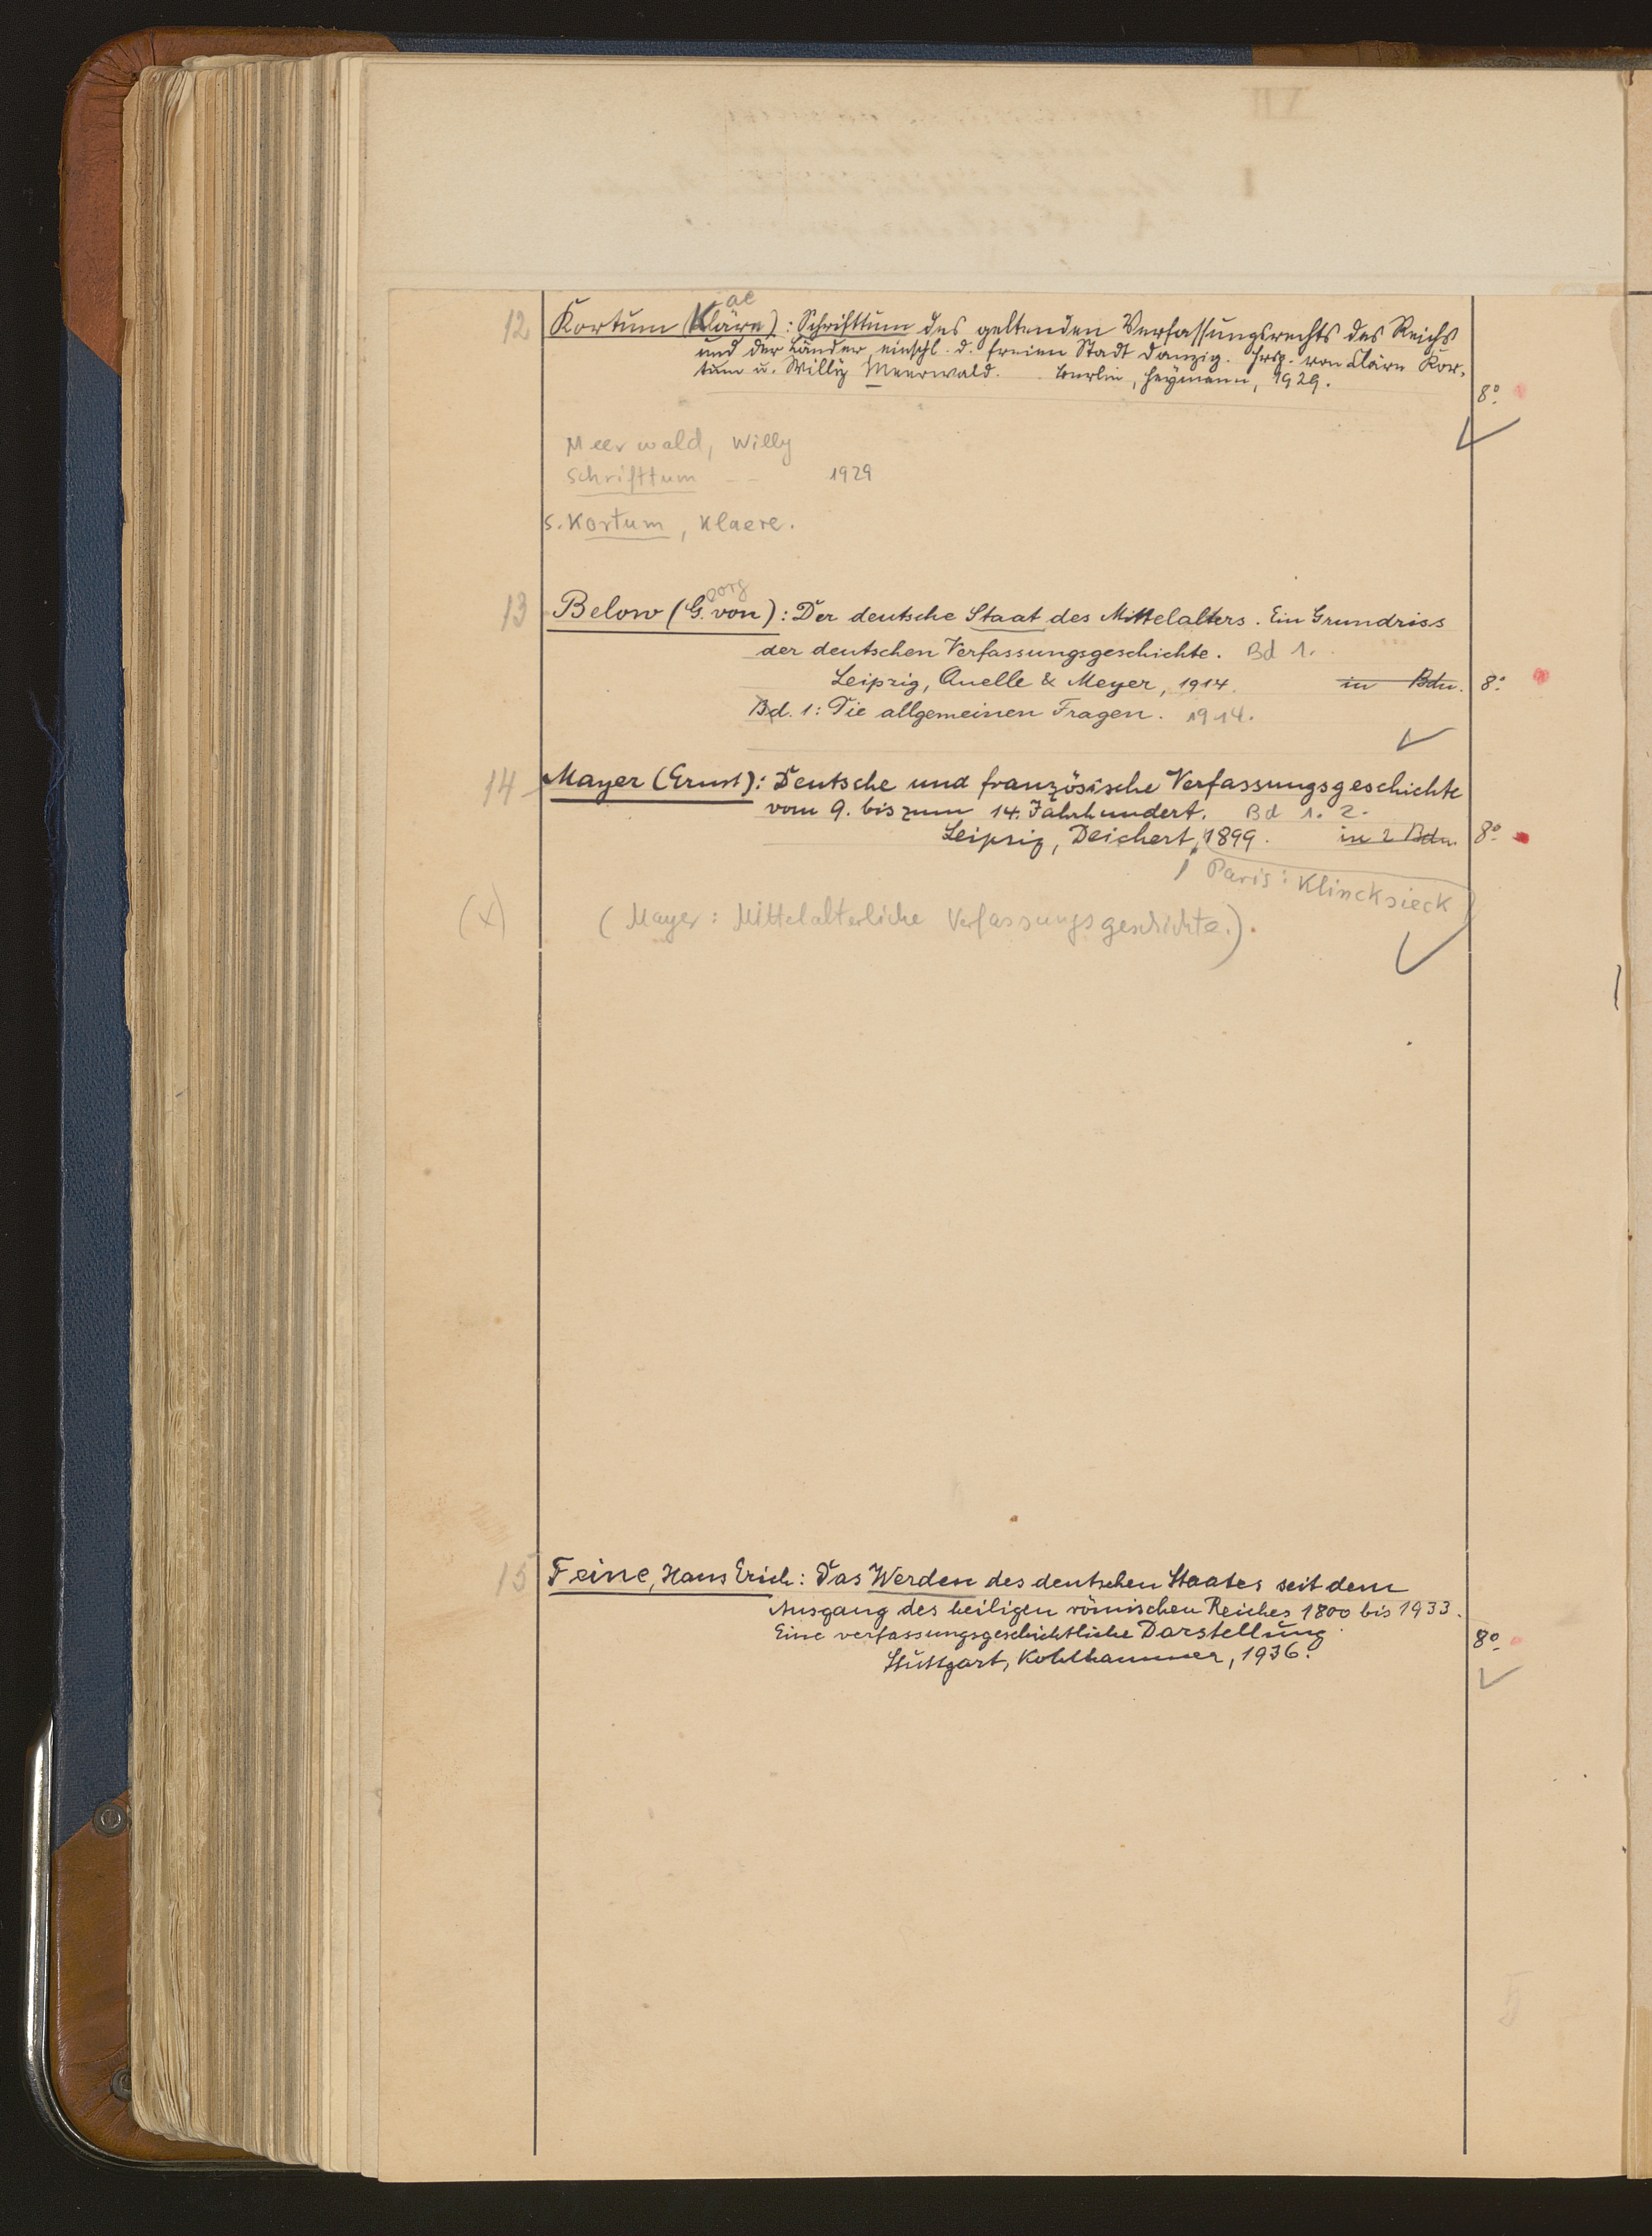 12 Kortum (Kläre): Schrifttum des geltenden Verfassungsrechts des Reichs
ae
und der Länder, einschl. d. freien Stadt Danzig. Hrsg. von Cläre Kor-
tum u. Willy Meerwald. Berlin, Heymann, 1929.
8°
Meerwald, Willy
Schrifttum -- 1929
s. Kortum, Klaere.
eorg
13 Below (G. von): Der deutsche Staat des Mittelalters. Ein Grundriss
der deutschen Verfassungsgeschichte. Bd 1.
Leipzig, Quelle & Meyer, 1914. in Bdn. 8°
Bd. 1: Die allgemeinen Fragen. 1914.
14 Mayer (Ernst): Deutsche und französische Verfassungsgeschichte
vom 9. bis zum 14. Jahrhundert. Bd 1. 2.
Leipzig, Deichert, 1899. in 2 Bdn. 8°
; Paris: Klincksieck
(x) (Mayer: Mittelalterliche Verfassungsgeschichte.).
15 Feine, Hans Erich: Das Werden des deutschen Staates seit dem
Ausgang des heiligen römischen Reiches 1800 bis 1933.
Eine verfassungsgeschichtliche Darstellung.
8°
Stuttgart, Kohlhammer, 1936.